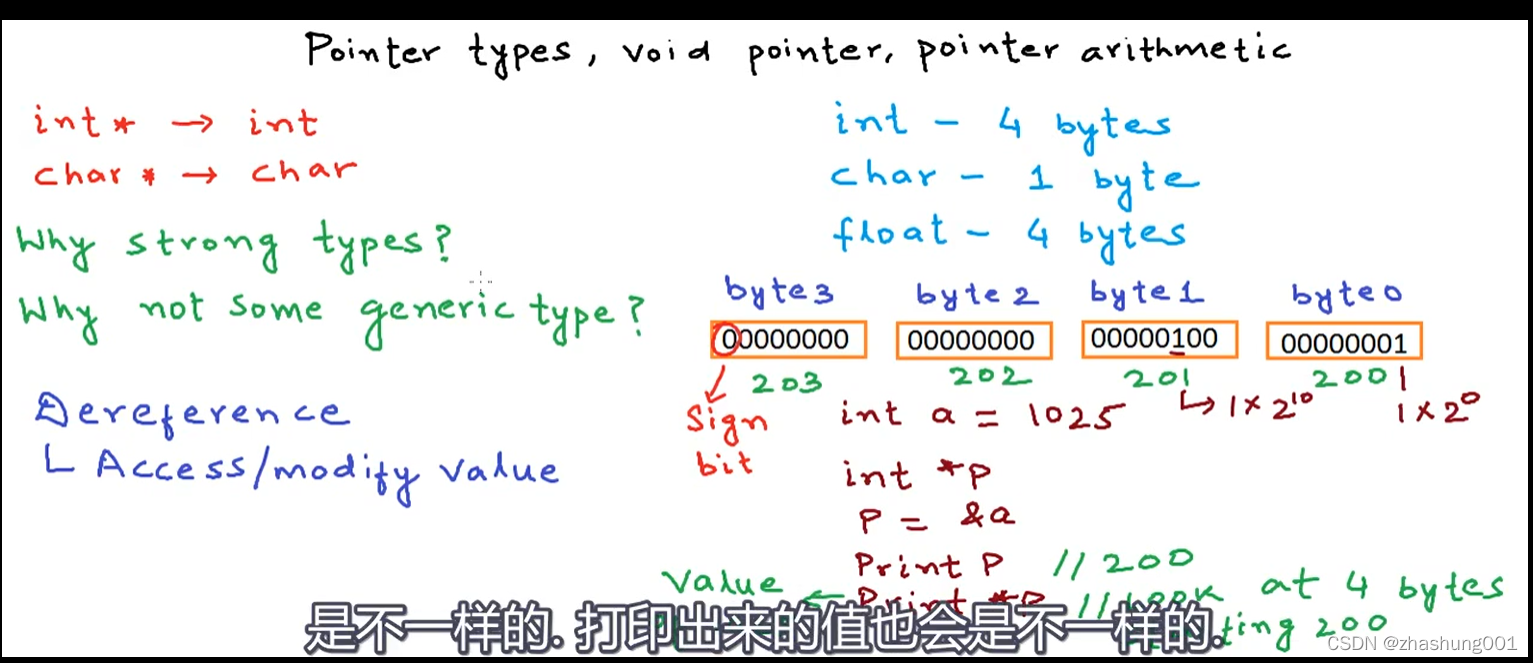 Pointer types, void pointer, pointer arithmetic
int* → int
char * → char
Why strong types?
Why not some generic type?
Dereference
Access/modify value
int - 4 bytes
char - 1 byte
float - 4 bytes
byte3 byte 2 byte 1 byte0
00000000 00000000 00000100 00000001
203 202 201 200
Sign bit
int a = 1025
1 x 2¹⁰
1 x 2⁰
int *p
P = &a
Print P // 200
Value ← Print *p // Look at 4 bytes
ting 200
是不一样的.打印出来的值也会是不一样的.
CSDN @zhashung001